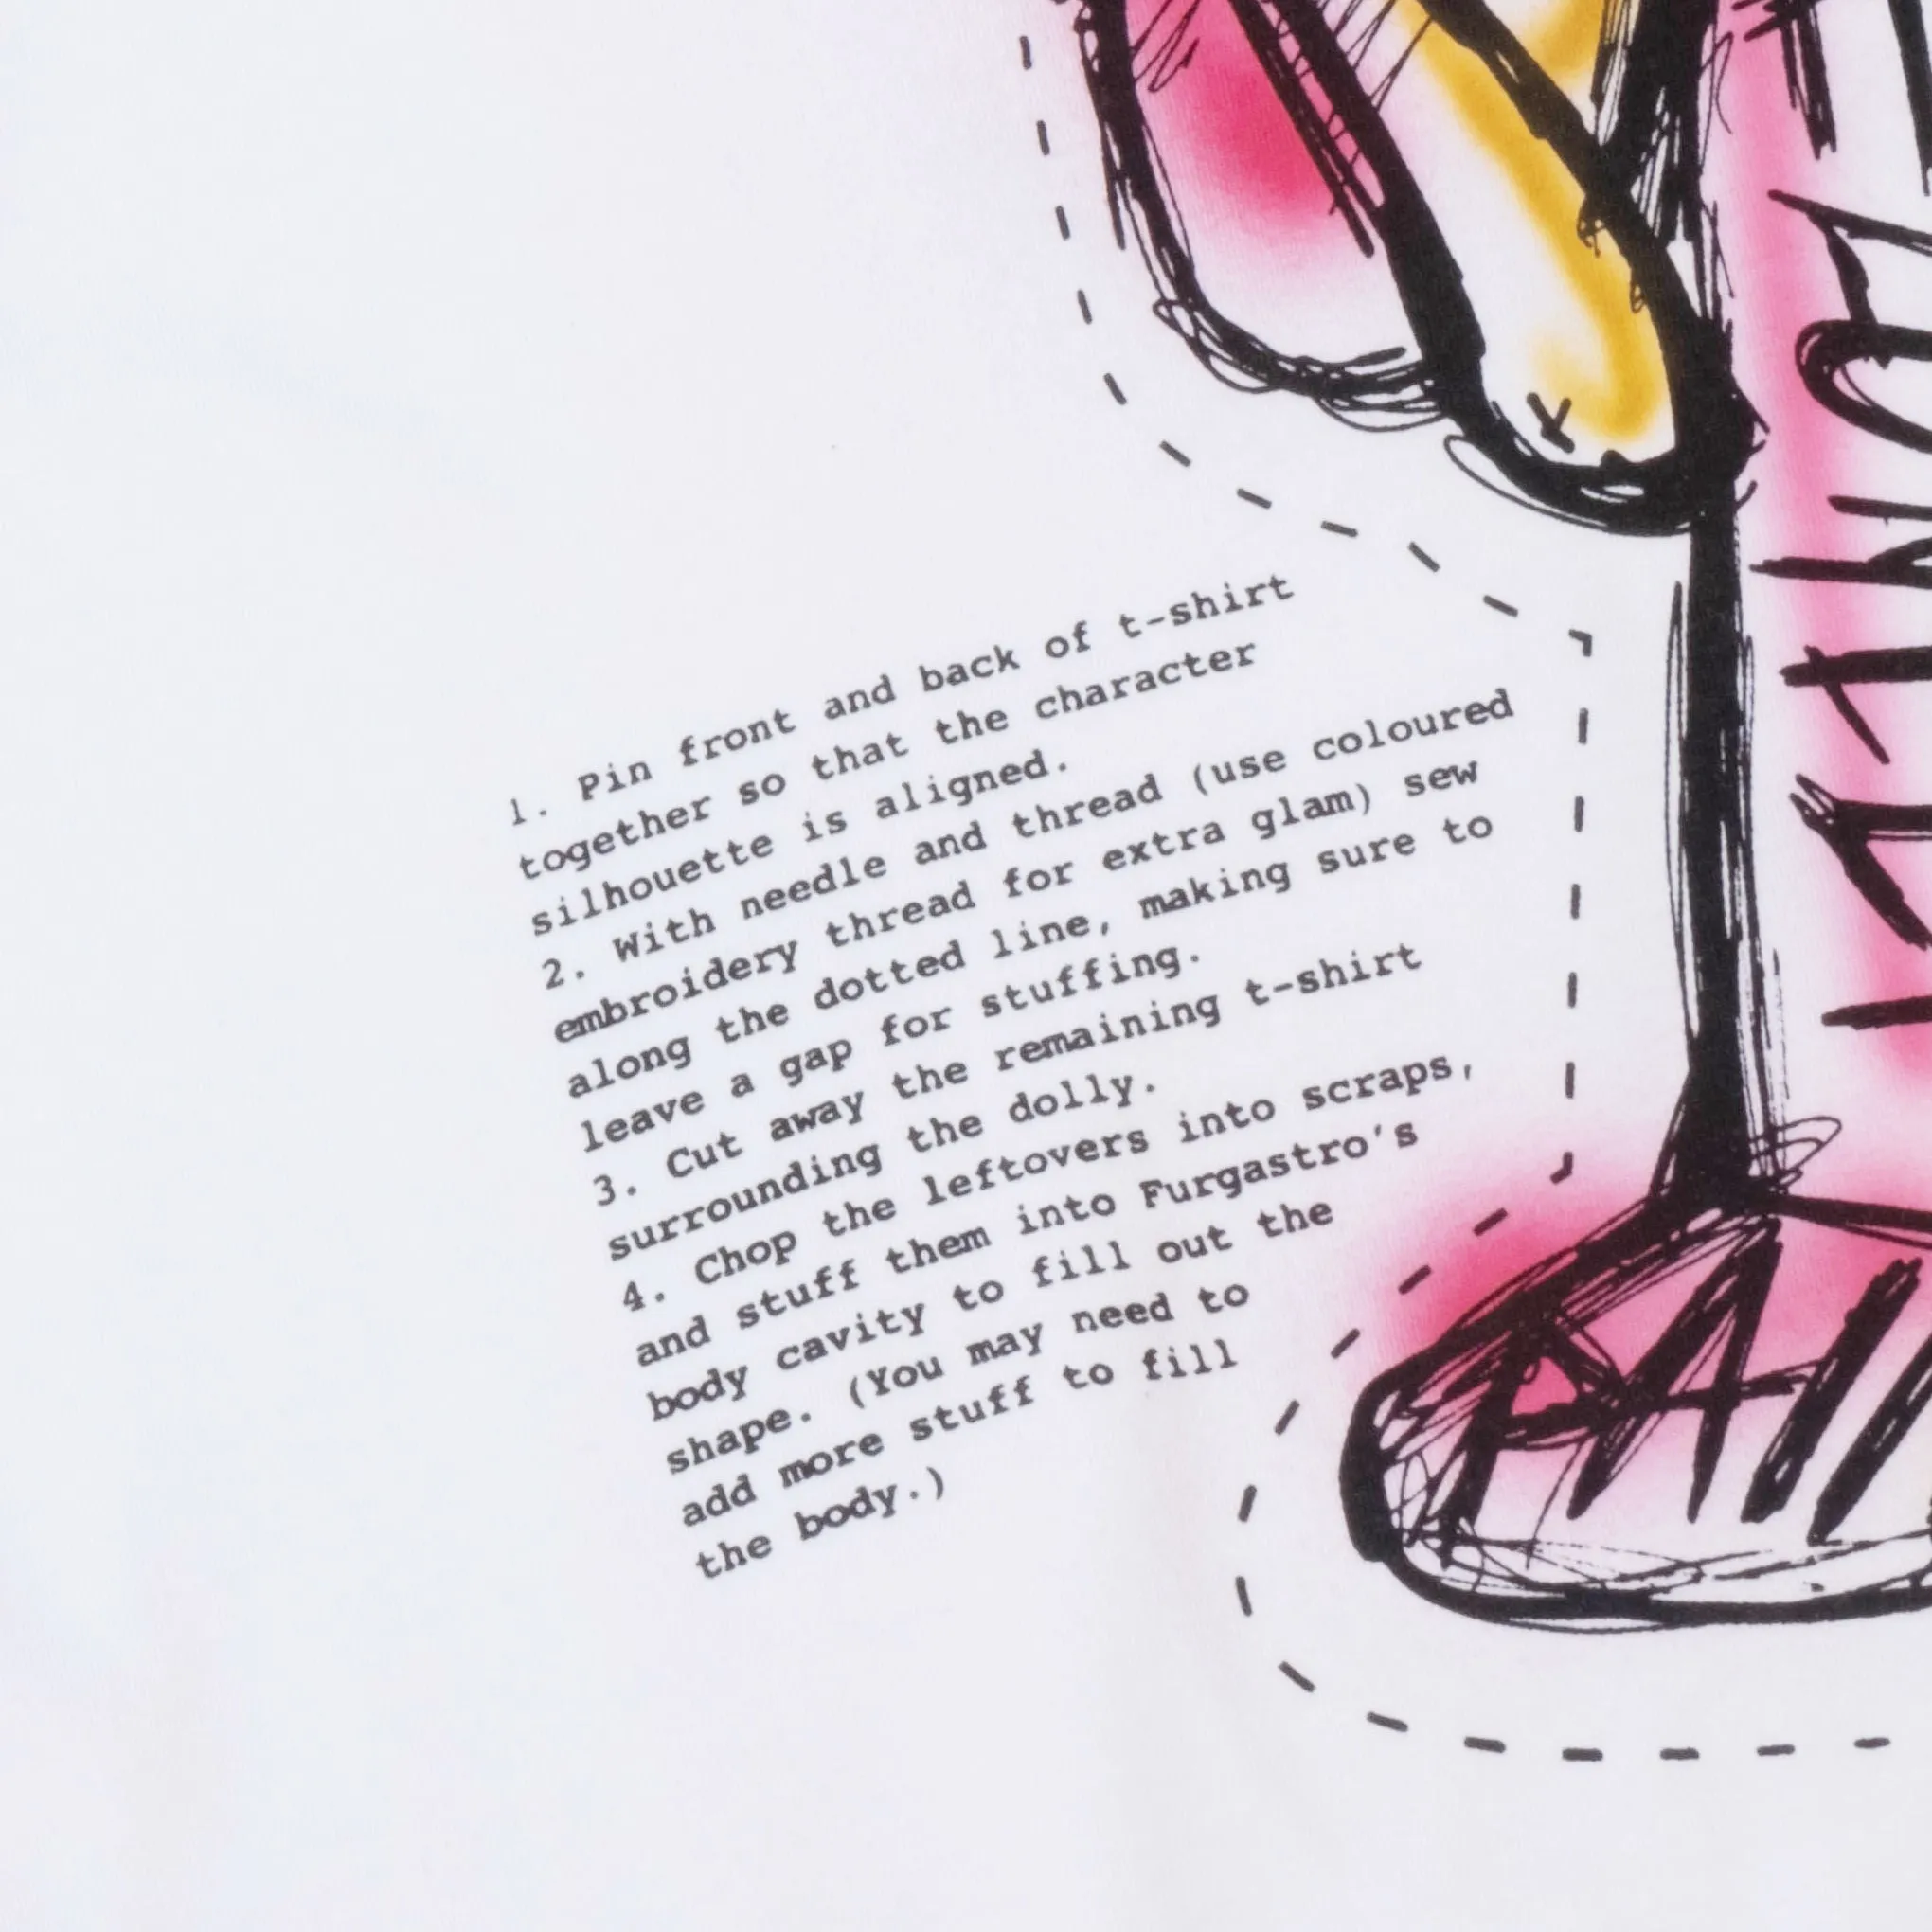 1. Pin front and back of t-shirt
together so that the character
silhouette is aligned.
2. With needle and thread (use coloured
embroidery thread for extra glam) sew
along the dotted line, making sure to
leave a gap for stuffing.
3. Cut away the remaining t-shirt
surrounding the dolly.
4. Chop the leftovers into scraps,
and stuff them into Furgastro's
body cavity to fill out the
shape. (You may need to
add more stuff to fill
the body.)